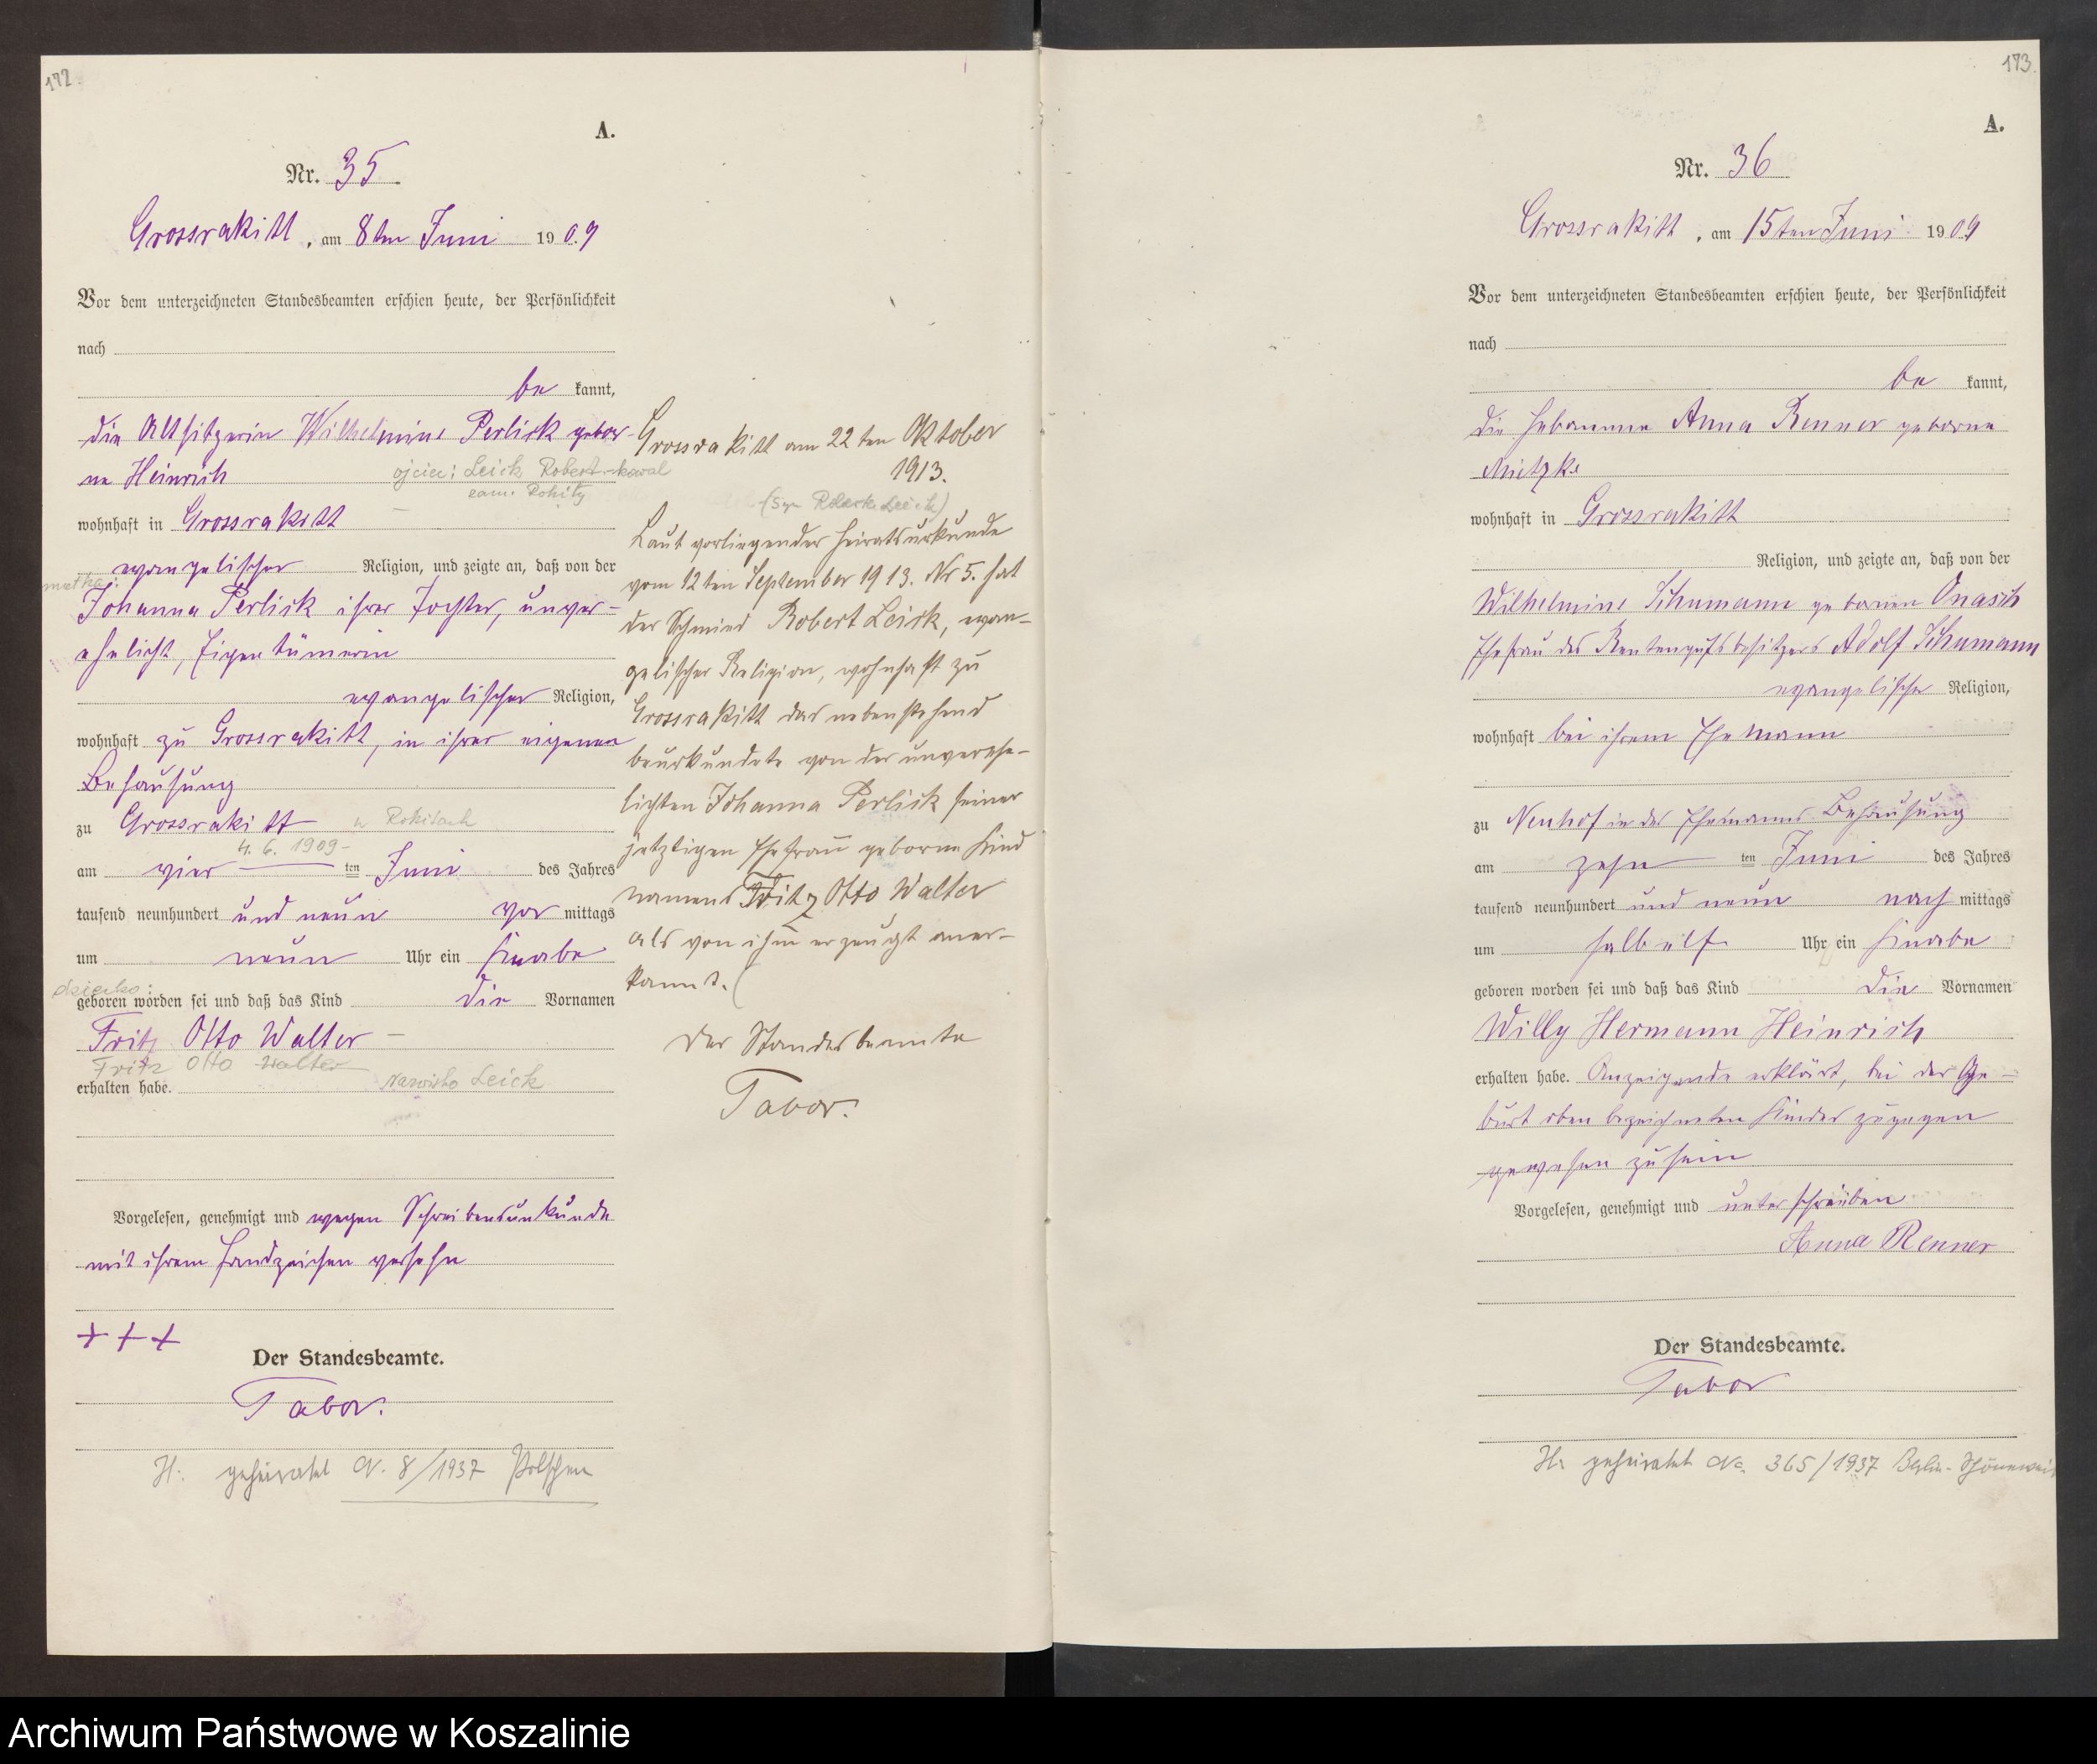 172.
A.
Nr. 35
Grossrakitt, am 8ten Juni 1909
Vor dem unterzeichneten Standesbeamten erschien heute, der Persönlichkeit
nach
be kannt,
die Altsitzerin Wilhelmine Perlick gebor-
ne Heinrich
ojciec: Leick Robert kowal
zam. Rokity
wohnhaft in Grossrakitt
evangelischer Religion, und zeigte an, daß von der
matka:
Johanna Perlick ihrer Tochter, unver-
ehelicht, Eigentümerin
evangelischer Religion,
wohnhaft zu Grossrakitt, in ihrer eigenen
Behausung
zu Grossrakitt w Rokitach
4. 6. 1909
am vier ten Juni des Jahres
tausend neunhundert und neun vor mittags
um neun Uhr ein Knabe
dziecko:
geboren worden sei und daß das Kind die Vornamen
Fritz Otto Walter
Fritz Otto Walter
erhalten habe. Nazwisko Leick
Vorgelesen, genehmigt und wegen Schreibensunkunde
mit ihrem Handzeichen versehn
+++
Der Standesbeamte.
Tabor.
H: geheiratet N. 8/1937 Polschen
Grossrakitt am 22ten Oktober
1913.
Laut vorliegender Heiratsurkunde
vom 12ten September 1913. Nr 5. hat
der Schmied Robert Leick, evan-
gelischer Religion, wohnhaft zu
Grossrakitt das nebenstehend
beurkundete von der unverehe-
lichten Johanna Perlick seiner
jetztigen Ehefrau geborne Kind
namens Fritz Otto Walter
als von ihm erzeugt aner-
kannt.
Der Standesbeamte
Tabor.
173.
A.
Nr. 36
Grossrakitt, am 15ten Juni 1909
Vor dem unterzeichneten Standesbeamten erschien heute, der Persönlichkeit
nach
be kannt,
die Hebamme Anna Renner geborne
Mietzke
wohnhaft in Grossrakitt
Religion, und zeigte an, daß von der
Wilhelmine Schumann geboren Onasch
Ehefrau des Rentengutsbesitzers Adolf Schumann
evangelische Religion,
wohnhaft bei ihrem Ehemann
zu Neuhof in des Ehemanns Behausung
am zehn ten Juni des Jahres
tausend neunhundert und neun nach mittags
um halb elf Uhr ein Knabe
geboren worden sei und daß das Kind die Vornamen
Willy Hermann Heinrich
erhalten habe. Anzeigende erklärt, bei der Ge-
burt oben bezeichneten Kindes zugegen
gewesen zu sein
Vorgelesen, genehmigt und unterschrieben
Anna Renner
Der Standesbeamte.
Tabor
H. geheiratet No. 365/1937 Berlin-
Archiwum Państwowe w Koszalinie